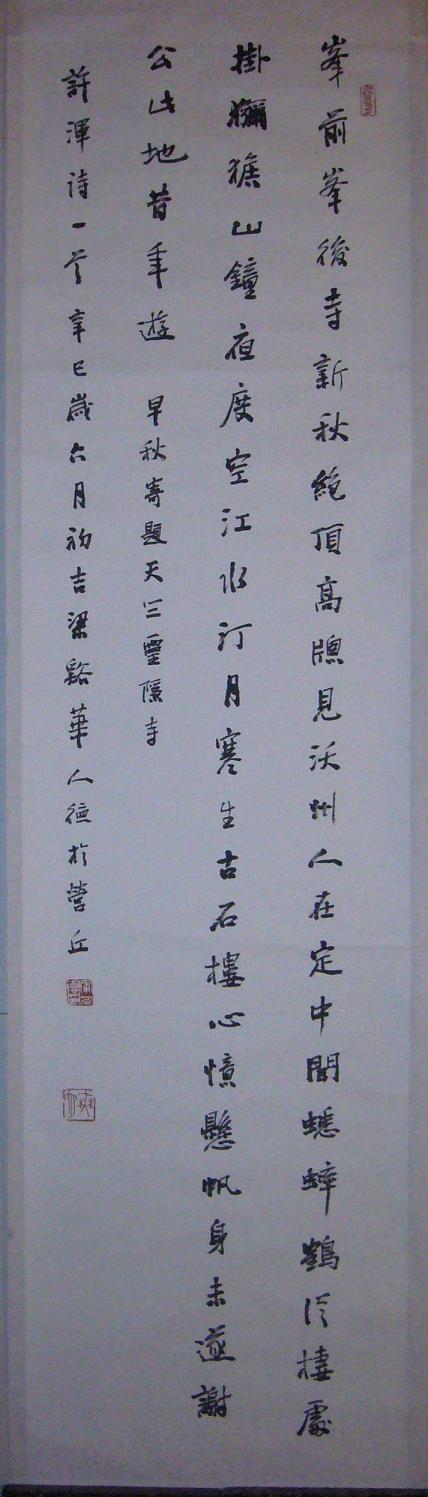 峯前峯後寺新秋絶頂高牕見沃州人在定中聞蟋蟀鶴從棲處
掛獼猴山鐘夜度空江水汀月寒生古石樓心憶懸帆身未遂謝
公此地昔年遊 早秋寄題天竺靈隱寺
許渾詩一首辛巳歲六月初吉梁谿華人德於營丘